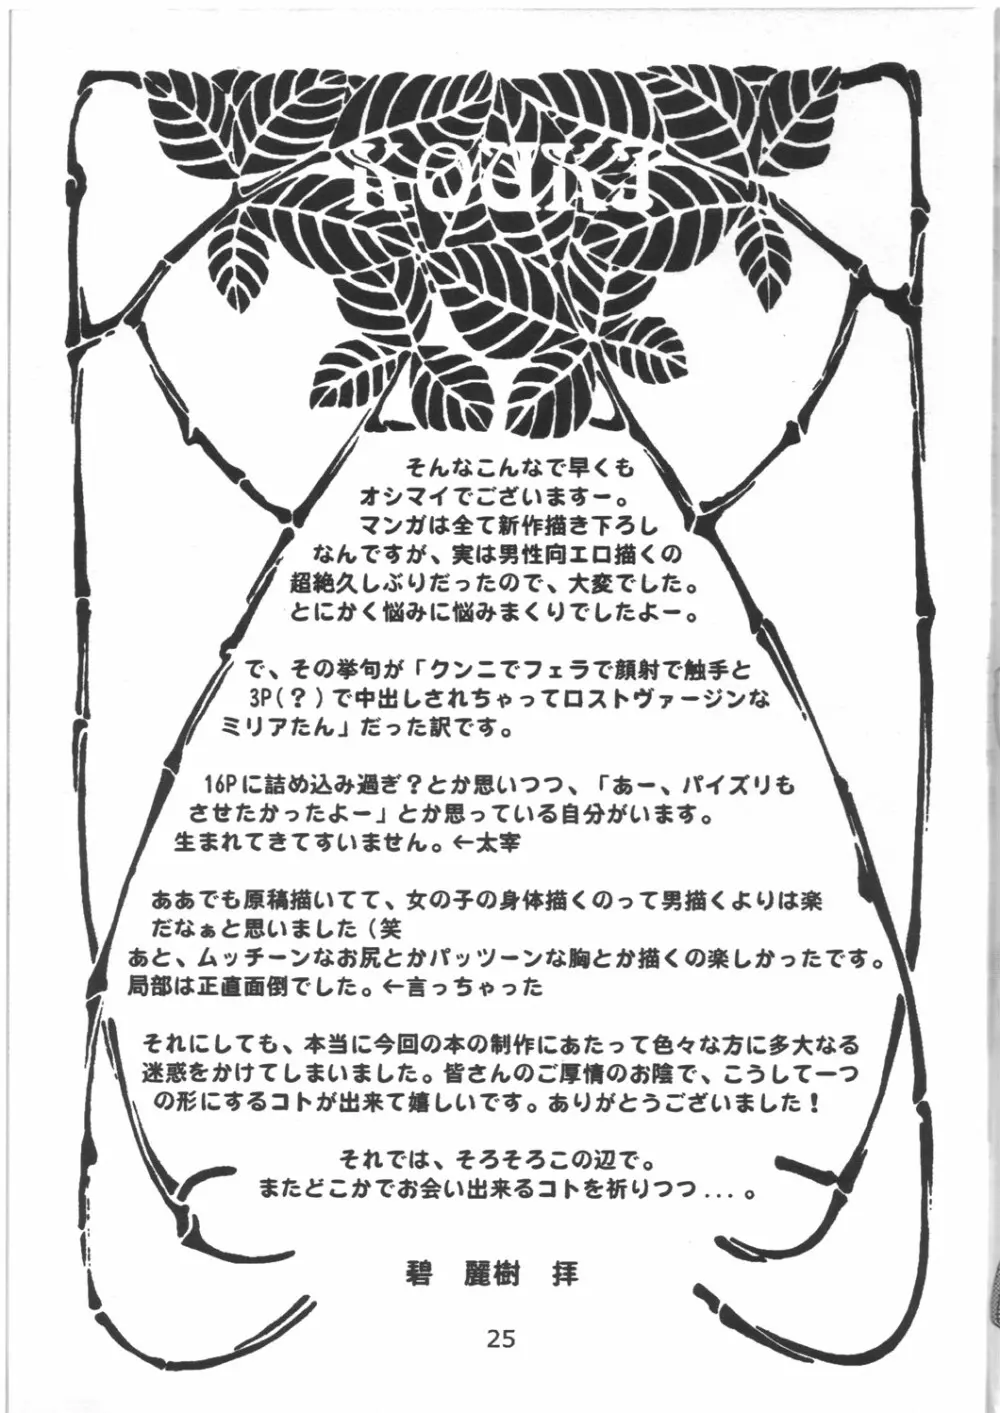 KOUKI
そんなこんなで早くも
オシマイでございますー。
マンガは全て新作描き下ろし
なんですが、実は男性向エロ描くの
超絶久しぶりだったので、大変でした。
とにかく悩みに悩みまくりでしたよー。
で、その挙句が「クンニでフェラで顔射で触手と
3P(？)で中出しされちゃってロストヴァージンな
ミリアたん」だった訳です。
16Pに詰め込み過ぎ？とか思いつつ、「あー、パイズリも
させたかったよー」とか思っている自分がいます。
生まれてきてすいません。←太宰
ああでも原稿描いてて、女の子の身体描くのって男描くよりは楽
だなぁと思いました(笑
あと、ムッチーンなお尻とかパッツーンな胸とか描くの楽しかったです。
局部は正直面倒でした。←言っちゃった
それにしても、本当に今回の本の制作にあたって色々な方に多大なる
迷惑をかけてしまいました。皆さんのご厚情のお陰で、こうして一つ
の形にするコトが出来て嬉しいです。ありがとうございました！
それでは、そろそろこの辺で。
またどこかでお会い出来るコトを祈りつつ...。
碧 麗樹 拝
25